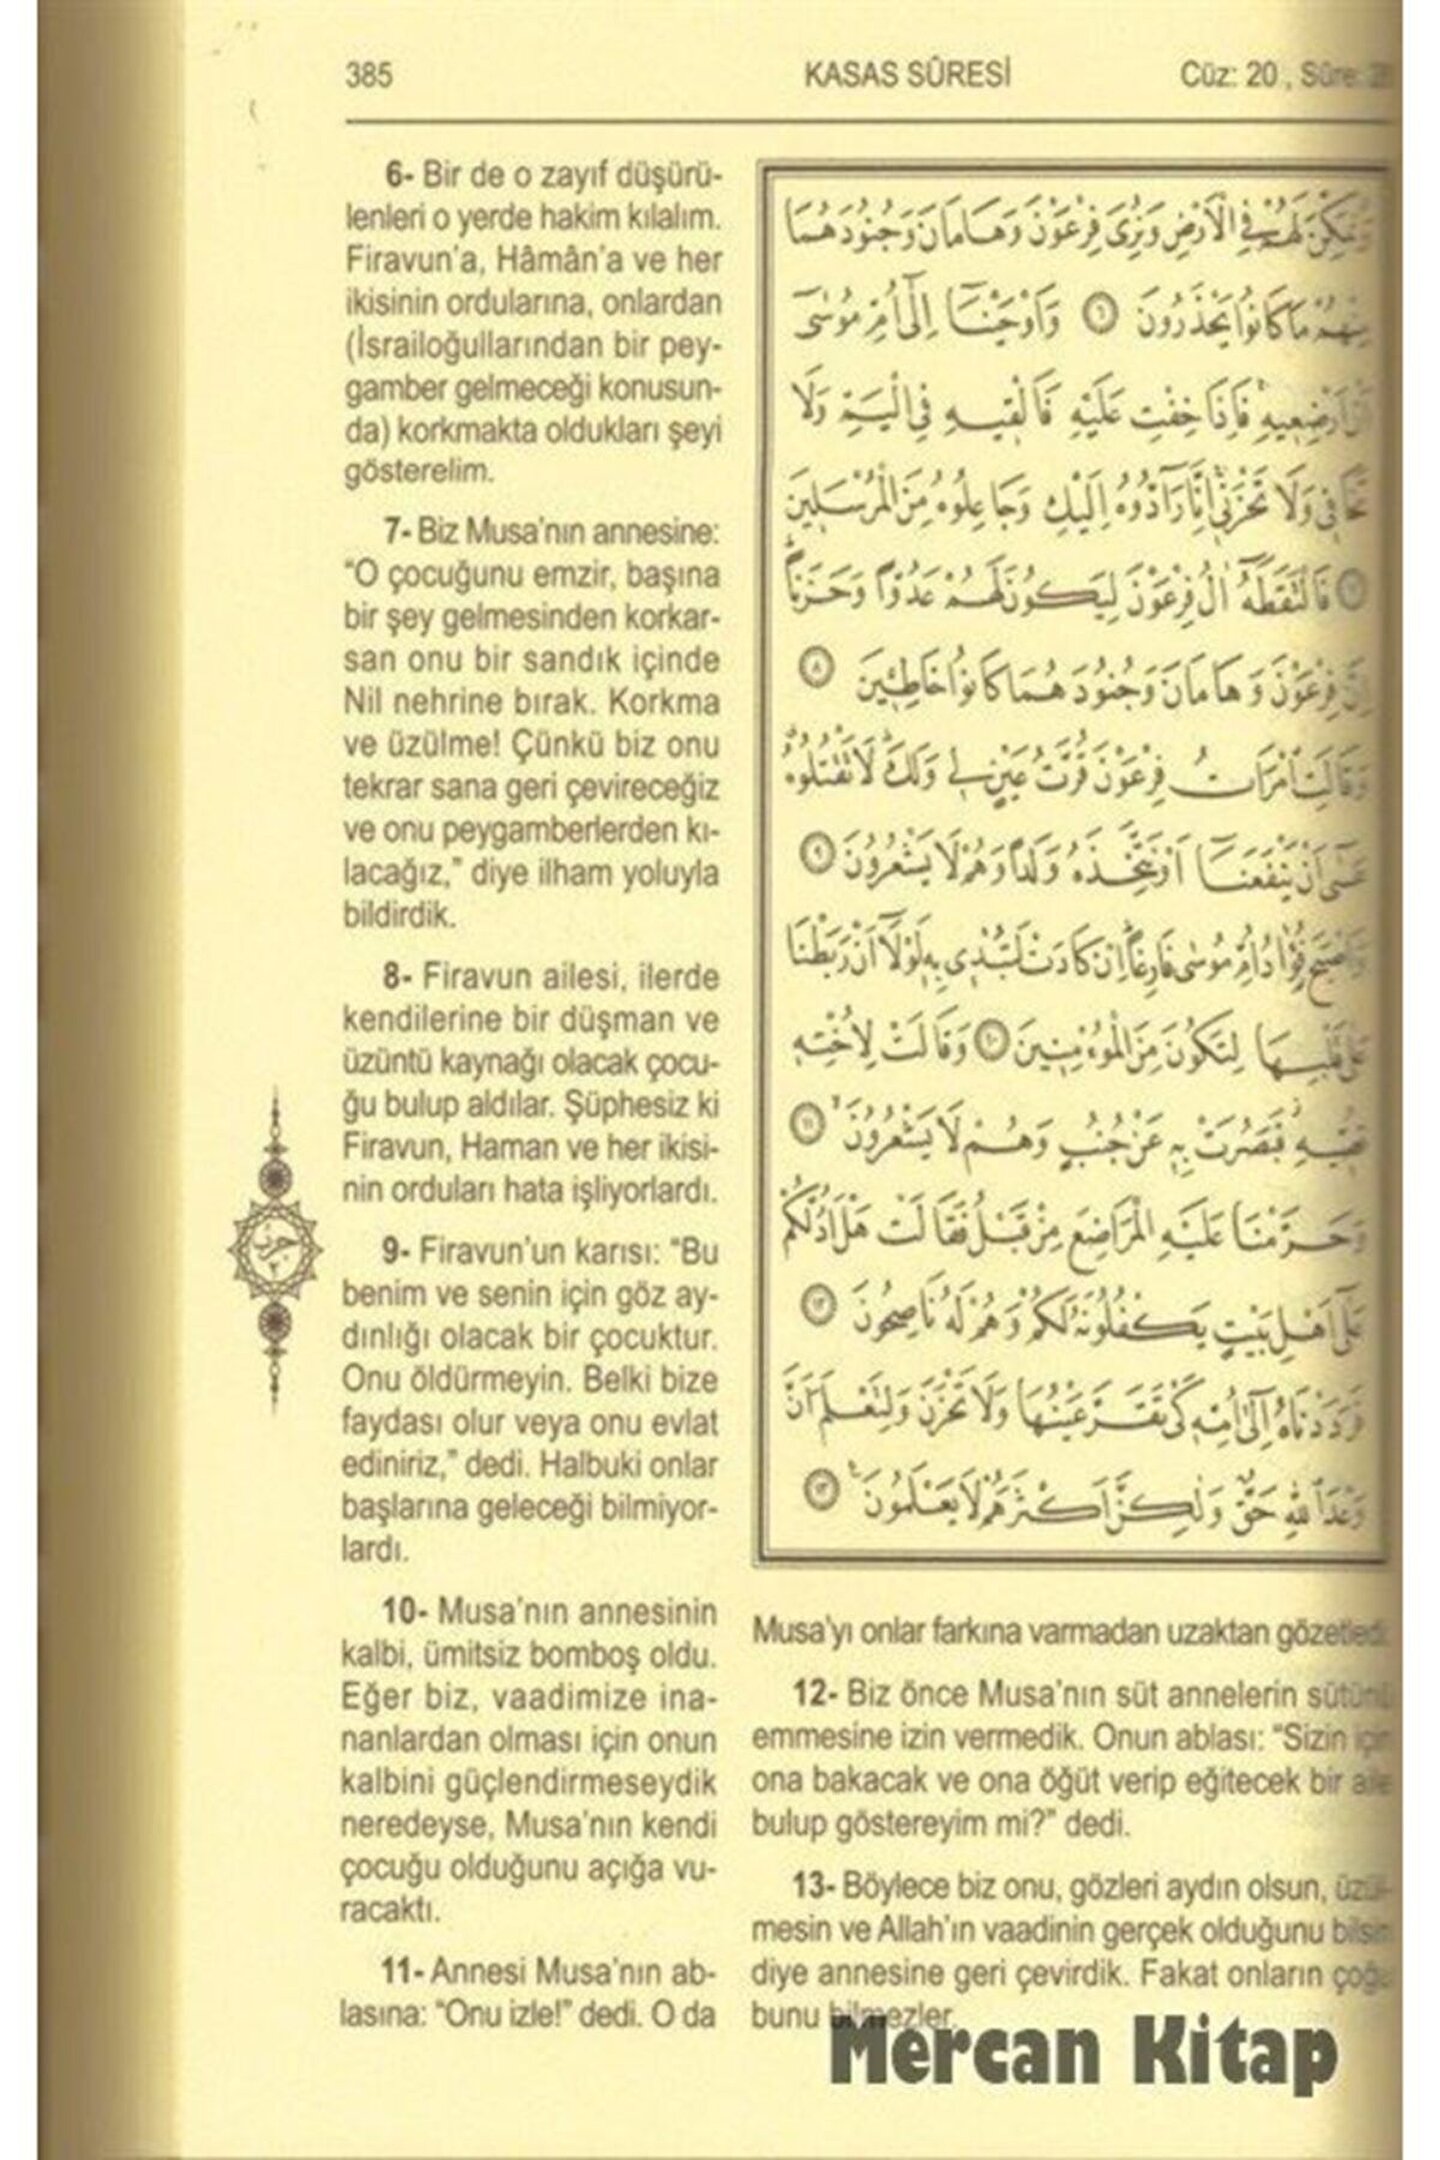 385 KASAS SÛRESİ Cüz: 20 , Sûre:
6- Bir de o zayıf düşürü-
lenleri o yerde hakim kılalım.
Firavun'a, Hâmân'a ve her
ikisinin ordularına, onlardan
(İsrailoğullarından bir pey-
gamber gelmeceği konusun-
da) korkmakta oldukları şeyi
gösterelim.
7- Biz Musa'nın annesine:
"O çocuğunu emzir, başına
bir şey gelmesinden korkar-
san onu bir sandık içinde
Nil nehrine bırak. Korkma
ve üzülme! Çünkü biz onu
tekrar sana geri çevireceğiz
ve onu peygamberlerden kı-
lacağız," diye ilham yoluyla
bildirdik.
8- Firavun ailesi, ilerde
kendilerine bir düşman ve
üzüntü kaynağı olacak çocu-
ğu bulup aldılar. Şüphesiz ki
Firavun, Haman ve her ikisi-
nin orduları hata işliyorlardı.
9- Firavun'un karısı: "Bu
benim ve senin için göz ay-
dınlığı olacak bir çocuktur.
Onu öldürmeyin. Belki bize
faydası olur veya onu evlat
ediniriz," dedi. Halbuki onlar
başlarına geleceği bilmiyor-
lardı.
10- Musa'nın annesinin
kalbi, ümitsiz bomboş oldu.
Eğer biz, vaadimize ina-
nanlardan olması için onun
kalbini güçlendirmeseydik
neredeyse, Musa'nın kendi
çocuğu olduğunu açığa vu-
racaktı.
11- Annesi Musa'nın ab-
lasına: "Onu izle!" dedi. O da
وَنُمَكِّنَ لَهُمْ فِي الْاَرْضِ وَنُرِيَ فِرْعَوْنَ وَهَامَانَ وَجُنُودَهُمَا
مِنْهُمْ مَا كَانُوا يَحْذَرُونَ ﴿٦﴾ وَاَوْحَيْنَٓا اِلٰٓى اُمِّ مُوسٰٓى
اَنْ اَرْضِعِيهِ فَاِذَا خِفْتِ عَلَيْهِ فَاَلْقِيهِ فِي الْيَمِّ وَلَا
تَخَافِي وَلَا تَحْزَنِي اِنَّا رَٓادُّوهُ اِلَيْكِ وَجَاعِلُوهُ مِنَ الْمُرْسَلِينَ
﴿٧﴾ فَالْتَقَطَهُٓ اٰلُ فِرْعَوْنَ لِيَكُونَ لَهُمْ عَدُوًّا وَحَزَنًا
اِنَّ فِرْعَوْنَ وَهَامَانَ وَجُنُودَهُمَا كَانُوا خَاطِـِٔينَ ﴿٨﴾
وَقَالَتِ امْرَاَتُ فِرْعَوْنَ قُرَّتُ عَيْنٍ لِي وَلَكَ لَا تَقْتُلُوهُ
عَسٰٓى اَنْ يَنْفَعَنَٓا اَوْ نَتَّخِذَهُ وَلَدًا وَهُمْ لَا يَشْعُرُونَ ﴿٩﴾
وَاَصْبَحَ فُؤٰادُ اُمِّ مُوسٰى فَارِغًا اِنْ كَادَتْ لَتُبْدِي بِهِ لَوْلَٓا اَنْ رَبَطْنَا
عَلٰى قَلْبِهَا لِتَكُونَ مِنَ الْمُؤْمِنِينَ ﴿١٠﴾ وَقَالَتْ لِاُخْتِهِ
قُصِّيهِ فَبَصُرَتْ بِهِ عَنْ جُنُبٍ وَهُمْ لَا يَشْعُرُونَ ﴿١١﴾
وَحَرَّمْنَا عَلَيْهِ الْمَرَاضِعَ مِنْ قَبْلُ فَقَالَتْ هَلْ اَدُلُّكُمْ
عَلٰٓى اَهْلِ بَيْتٍ يَكْفُلُونَهُ لَكُمْ وَهُمْ لَهُ نَاصِحُونَ ﴿١٢﴾
فَرَدَدْنَاهُ اِلٰٓى اُمِّهِ كَيْ تَقَرَّ عَيْنُهَا وَلَا تَحْزَنَ وَلِتَعْلَمَ اَنَّ
وَعْدَ اللّٰهِ حَقٌّ وَلٰكِنَّ اَكْثَرَهُمْ لَا يَعْلَمُونَ ﴿١٣﴾
Musa'yı onlar farkına varmadan uzaktan gözetledi.
12- Biz önce Musa'nın süt annelerin sütünü
emmesine izin vermedik. Onun ablası: "Sizin için
ona bakacak ve ona öğüt verip eğitecek bir aile
bulup göstereyim mi?" dedi.
13- Böylece biz onu, gözleri aydın olsun, üzül-
mesin ve Allah'ın vaadinin gerçek olduğunu bilsin
diye annesine geri çevirdik. Fakat onların çoğu
bunu bilmezler.
Mercan Kitap